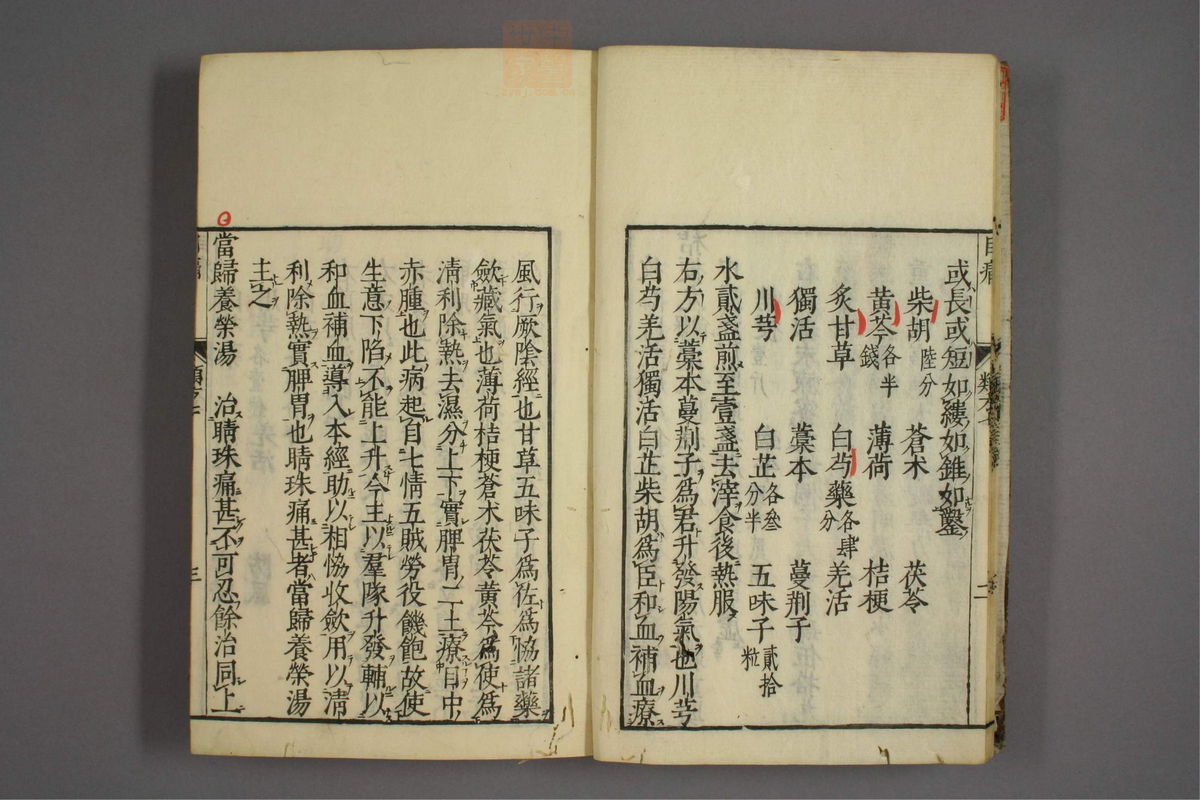 或長或短如縷如錐如鑿
柴胡陸分　蒼朮　茯苓
黃芩各半錢　薄荷　桔梗
炙甘草　白芍藥各肆分　羌活
獨活　藁本　蔓荆子
川芎　白芷各叁分半　五味子貳拾粒
水貳盞煎至壹盞去滓食後熱服
右方以藁本蔓荆子爲君升發陽氣也川芎
白芍羌活獨活白芷柴胡爲臣和血補血療
風行厥陰經也甘草五味子爲佐爲恊諸藥
斂藏氣也薄荷桔梗蒼朮茯苓黃芩爲使爲
清利除熱去濕分上下實脾胃二土療目中
赤腫也此病起自七情五賊勞役饑飽故使
生意下陷不能上升今主以羣隊升發輔以
和血補血導入本經助以相恊收斂用以清
利除熱實脾胃也睛珠痛甚者當歸養榮湯
主之
當歸養榮湯　治睛珠痛甚不可忍餘治同上